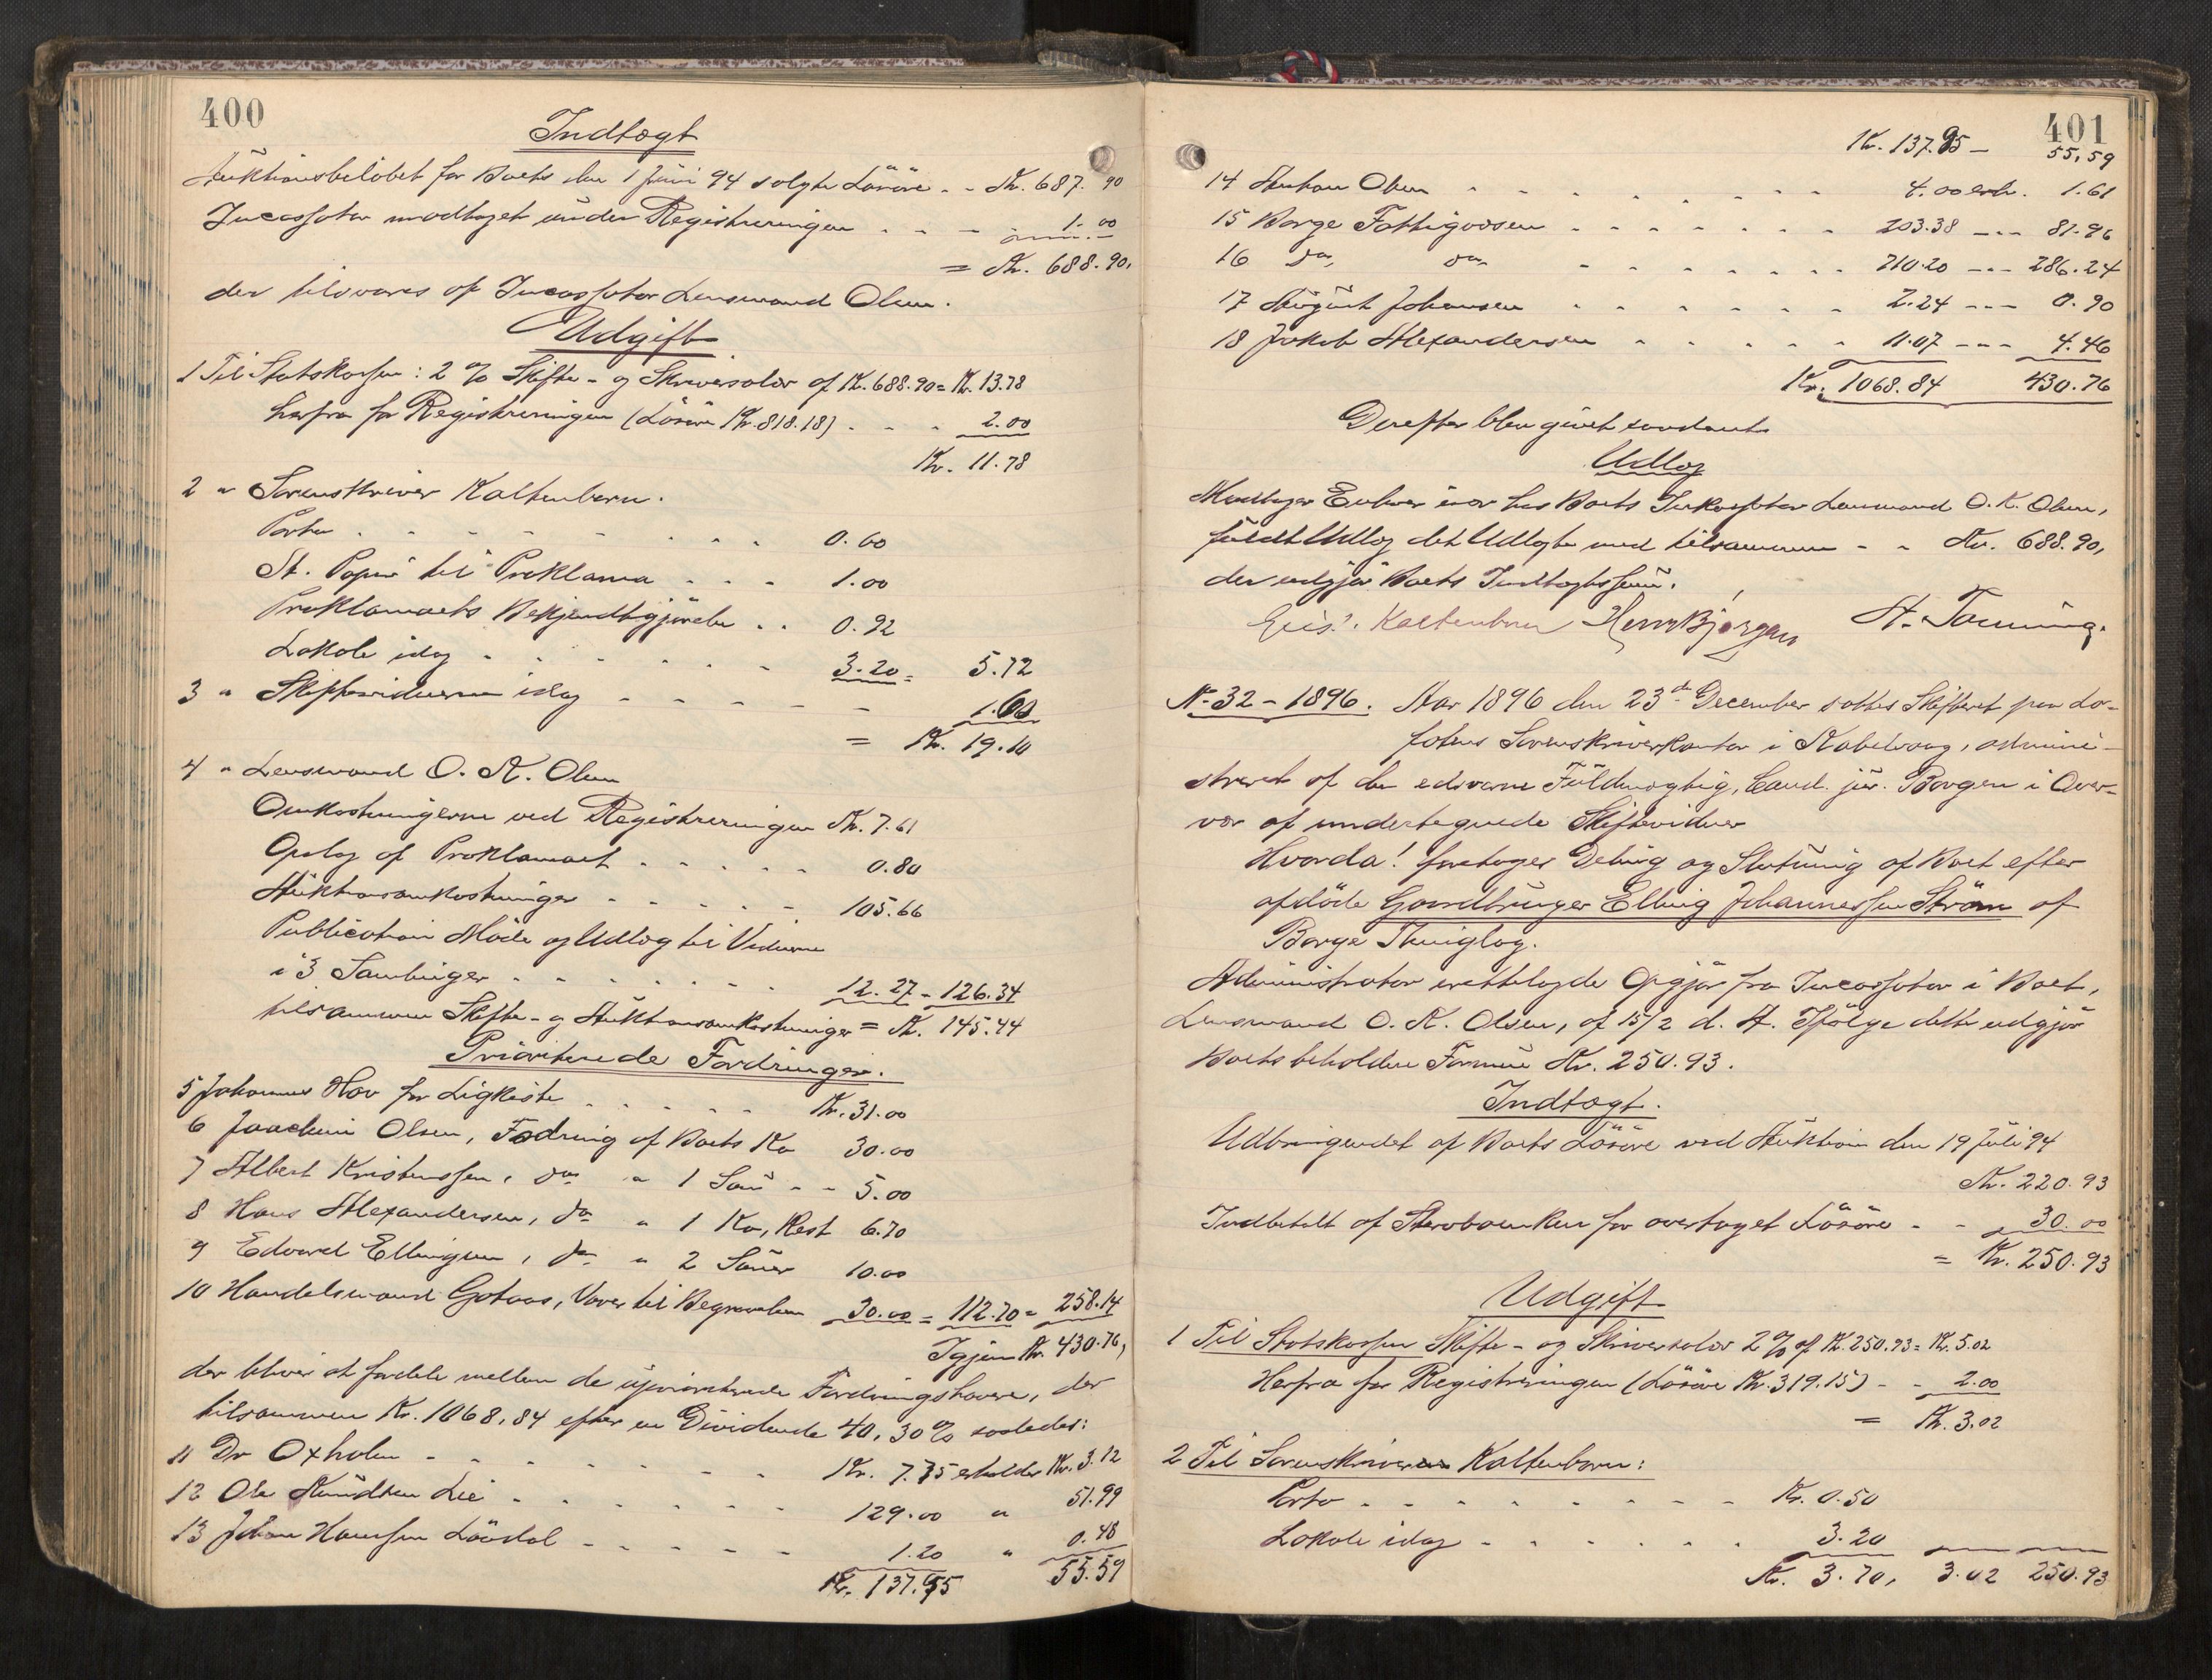 400
Indtægt
Auktionsbeløbet for Boets den 1 Juni 94 solgte Løsøre - - Kr. 687.90
Incassator modtaget under Registreringen - - - 1.00
= Kr. 688.90,
der tilsvares af Incassator Lensmand Olsen.
Udgift
1 Til Statskassen: 2 % Skifte- og Skriversalær af Kr. 688.90 = Kr. 13.78
herfra for Registreringen (Løsøre Kr. 818.18) - - - 2.00
Kr. 11.78
2 " Sorenskriver Kaltenborn.
Porto - - - - - - 0.60
St. Papir til Proklama - - - 1.00
Proklamaets Bekjendtgjørelse - - 0.92
Lokale idag - - - - - 3.20 = 5.72
3 " Skiftevidnerne idag - - - - - 1.60
= Kr. 19.10
4 " Lensmand O. K. Olsen
Omkostningerne ved Registreringen Kr. 7.61
Opslag af Proklamaet - - - - - 0.80
Auktionsomkostninger - - - - - 105.66
Publication Møde og Udlæg til Vidnerne
i 3 Samlinger - - - - - - 12.27 - 126.34
tilsammen Skifte- og Auktionsomkostninger = Kr. 145.44
Prioriterede Fordringer.
5 Johannes Hov for Ligkiste - - - - - Kr. 31.00
6 Joachim Olsen, Fodring af Boets Ko 30.00
7 Albert Kristenssen, do " 1 Sau - - 5.00
8 Hans Alexandersen, do " 1 Ko, Rest 6.70
9 Edvard Ellingsen, do " 2 Sauer 10.00
10 Handelsmand Gotaas, Varer til Begravelsen 30.00 = 112.70 = 258.14
Igjen Kr. 430.76,
der bliver at fordele mellem de uprioriterede Fordringshavere, der
tilsammen Kr. 1068,84 efter en Dividende 40,30% saaledes:
11 Dr Oxholm - - - - - - - Kr. 7.75 erholder Kr. 3.12
12 Ole Knudsen Lie - - - - - - 129.00 " 51.99
13 Johan Hanssen Lødøl - - - - - 1.20 " 0.48
Kr. 137.95 55.59
401
Kr. 137.95 - 55,59
14 Olsen - - - - - - 4.00 erh. 1.61
15 Borge Fattigvæsen - - - - - - 203.38 - - - 81.96
16 do, do - - - - - - 710.20 - - - 286.24
17 August Johansen - - - - - - 2.24 - - - 0.90
18 Jakob Alexandersen - - - - - 11.07 - - - 4.46
Kr. 1068.84 430.76
Derefter blev givet saadant
Udlæg
Modtager Enhver især hos Boets Inkassator Lensmand O. K. Olsen,
fuldt Udlæg det Udlagte med tilsammen - - Kr. 688.90,
der udgjør Boets Indtægtssum.
Kaltenborn Herm Bjørgan A. Tønning.
N. 32 - 1896. Aar 1896 den 23de December sattes Skifteret paa Lo-
fotens Sorenskriverkontor i Kabelvaag, admini-
streret af den edsvorne Fuldmægtig, Cand. jur. Borgen i Over-
vær af undertegnede Skiftevidner
Hvorda! foretoges Deling og Slutning af Boet efter
afdøde Gaardbruger Elling Johannessen Strøm af
Borge Thinglag.
Administrator irettelagde Opgjør fra Incassator i Boet,
Lensmand O. K. Olsen, af 15/2 d. A. Ifølge dette udgjør
Boets beholdne Formue Kr. 250.93.
Indtægt.
Udbringendet af Boets Løsøre ved Auktion den 19 Juli 94
Kr. 220.93
Indbetalt af Sterboenken for overtaget Løsøre - - 30.00
= Kr. 250.93
Udgift
1 Til Statskassen Skifte- og Skriversalær 2 % af Kr. 250.93 = Kr. 5.02
Herfra for Registreringen (Løsøre Kr. 319.15) - - 2.00
= Kr. 3.02
2 Til Sorenskriver Kaltenborn:
Porto - - - - - - - - Kr. 0.50
Lokale idag - - - - - - 3.20
Kr. 3.70, 3.02 250.93